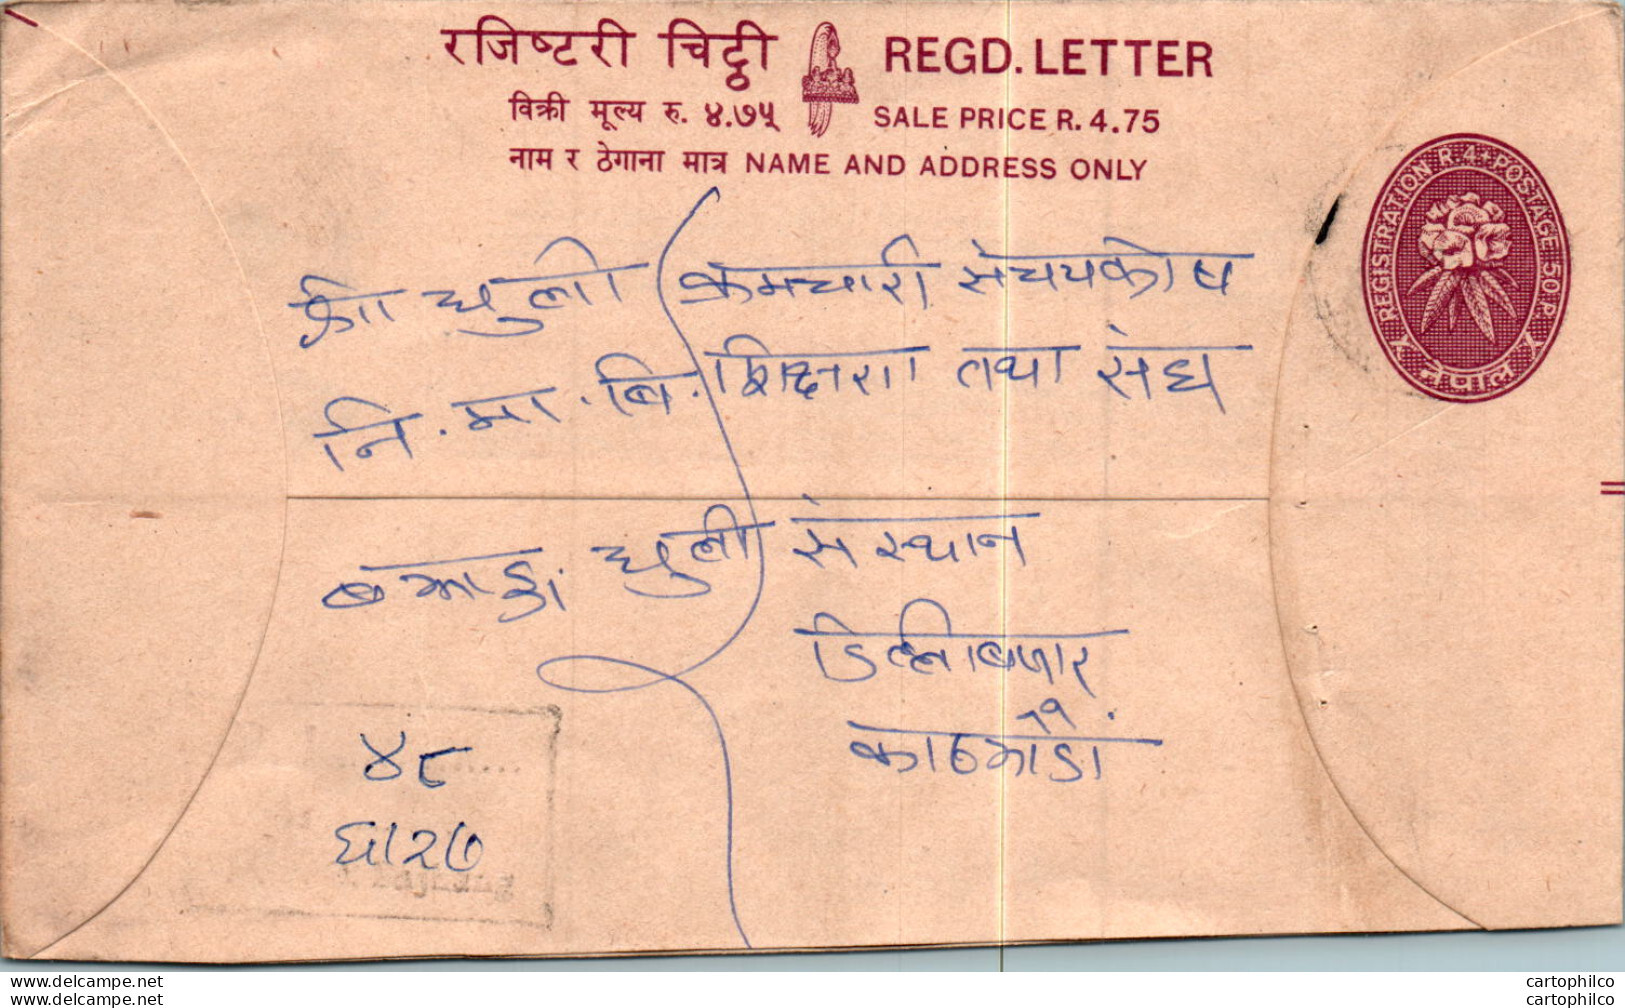 रजिष्टरी चिट्ठी REGD. LETTER
विक्री मूल्य रु. ४.७५ SALE PRICE R. 4.75
नाम र ठेगाना मात्र NAME AND ADDRESS ONLY
REGISTRATION R 4+POSTAGE 50 P.
नेपाल
श्री धुली
नि. मा. बि.
बझाङ्ग, धुली
कर्मचारी संचयकोष
शिक्षशा तथा संघ
संस्थान
डिल्लीबजार
काठमाडौं
४८
cartophilco
cartophilco
delcampe.net
delcampe.net